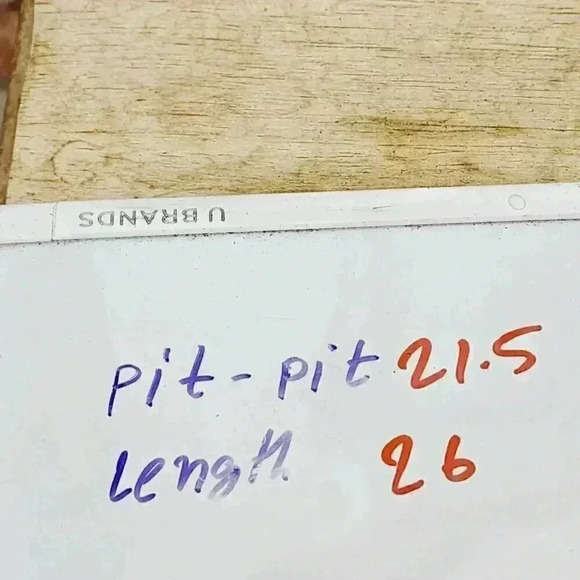 U BRANDS
pit - pit 21.5
Length 26